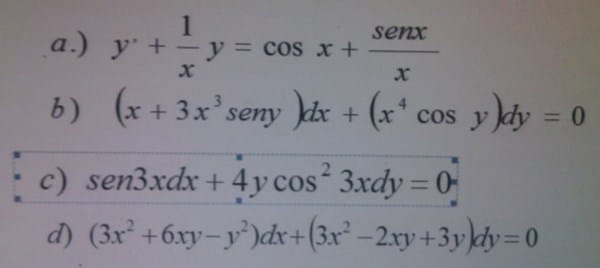 a.) y' + 1/x y = cos x + senx/x
b) (x + 3x³seny)dx + (x⁴ cos y)dy = 0
c) sen3xdx + 4y cos² 3xdy = 0
d) (3x² + 6xy − y²)dx + (3x² − 2xy + 3y)dy = 0